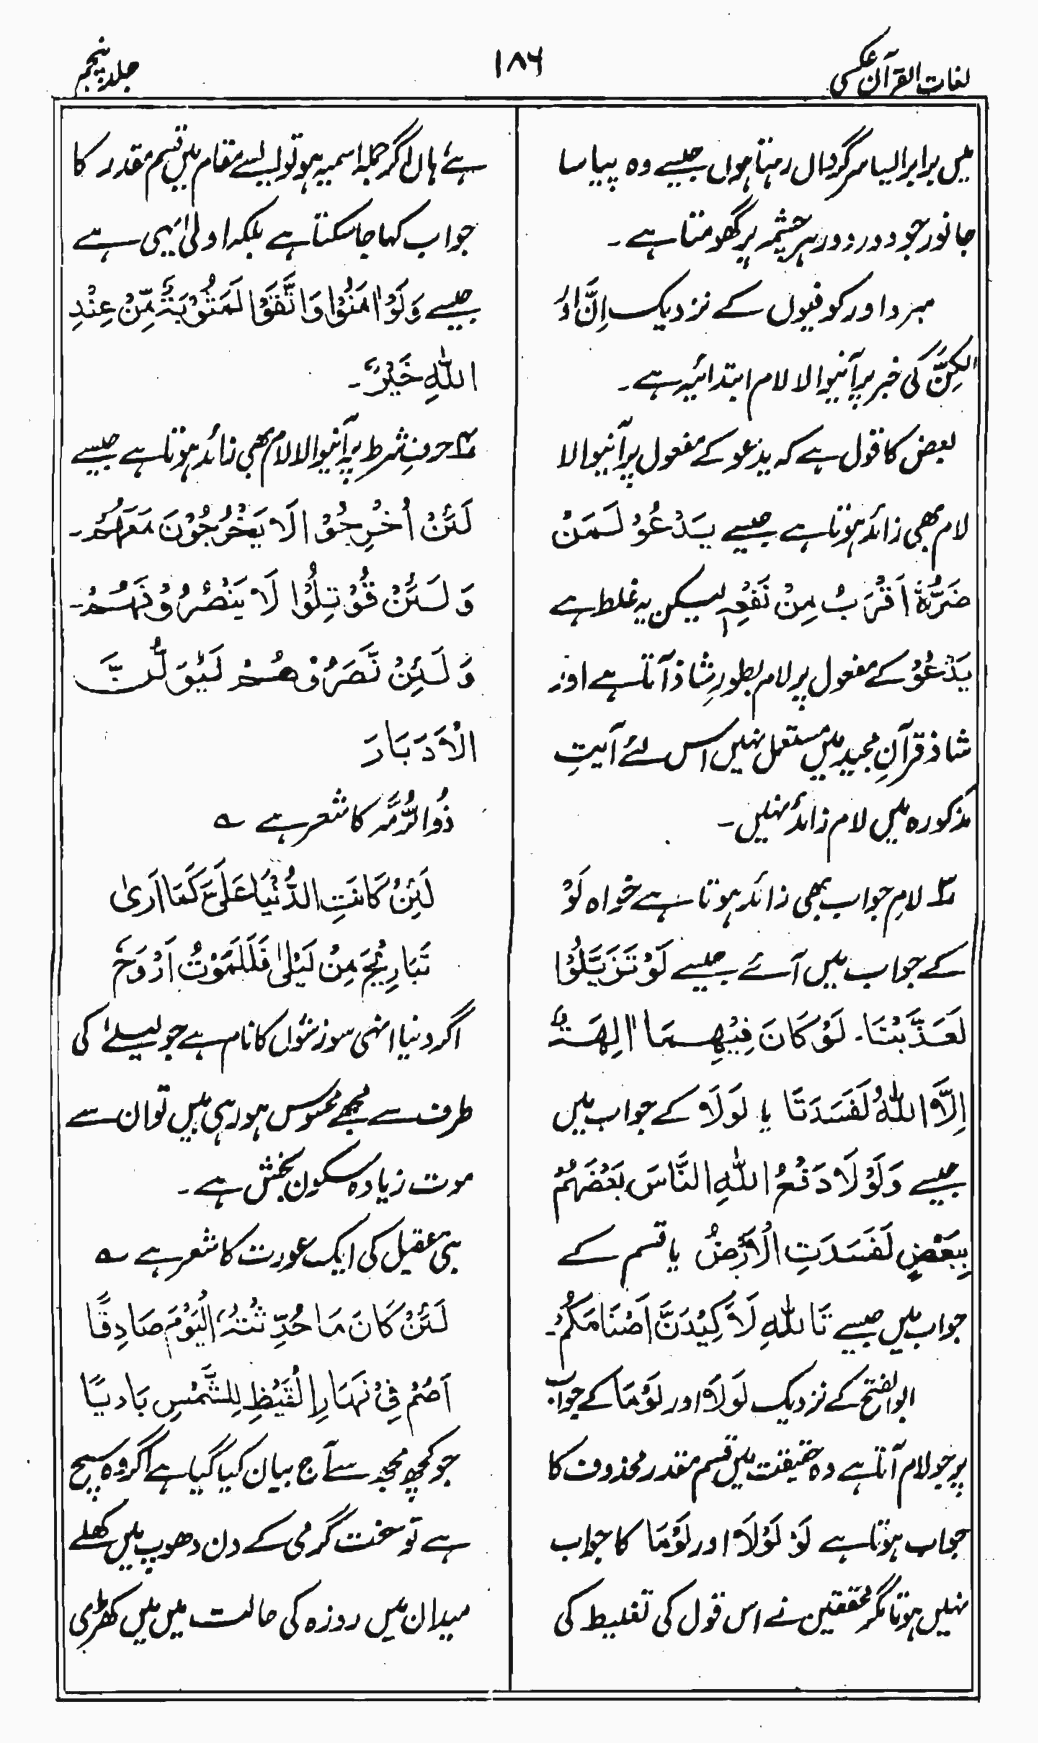 لغات القرآن عکسی
۱۸۶
جلد پنجم
میں برابر ایسا سرگرداں رہتا ہوں جیسے وہ پیاسا
جانور جو دور دور ہر چشمہ پر گھومتا ہے۔
مبرد اور کوفیوں کے نزدیک اِنَّ اور
لٰکِنَّ کی خبر پر آنیوالا لام ابتدائیہ ہے۔
بعض کا قول ہے کہ یدعو کے مفعول پر آنیوالا
لام بھی زائد ہوتا ہے جیسے یَدْعُوْ لَمَنْ
ضَرُّهٗ اَقْرَبُ مِنْ نَفْعِہٖ لیکن یہ غلط ہے
یَدْعُوْ کے مفعول پر لام بطورِ شاذ آتا ہے اور
شاذ قرآنِ مجید میں مستعمل نہیں اس لئے آیتِ
مذکورہ میں لام زائد نہیں۔
۳ لامِ جواب بھی زائد ہوتا ہے خواہ لَوْ
کے جواب میں آئے جیسے لَوْ تَزَیَّلُوْا
لَعَذَّبْنَا۔ لَوْ کَانَ فِیْهِمَا اٰلِهَةٌ
اِلَّا اللّٰهُ لَفَسَدَتَا یا لَوْلَا کے جواب میں
جیسے وَلَوْلَا دَفْعُ اللّٰهِ النَّاسَ بَعْضَهُمْ
بِبَعْضٍ لَفَسَدَتِ الْاَرْضُ یا قسم کے
جواب میں جیسے تَاللّٰهِ لَاَکِیْدَنَّ اَصْنَامَکُمْ۔
ابوالفتح کے نزدیک لَوْلَا اور لَوْمَا کے جواب
پر جو لام آتا ہے وہ حقیقت میں قسم مقدر محذوف کا
جواب ہوتا ہے لَوْ لَوْلَا اور لَوْمَا کا جواب
نہیں ہوتا مگر محققین نے اس قول کی تغلیط کی
ہے ہاں اگر جملہ اسمیہ ہو تو ایسے مقام میں قسم مقدر کا
جواب کہا جا سکتا ہے بلکہ اولیٰ یہی ہے
جیسے وَلَوْ اٰمَنُوْا وَاتَّقَوْا لَمَثُوْبَةٌ مِّنْ عِنْدِ
اللّٰهِ خَیْرٌ۔
۴ حرفِ شرط پر آنیوالا لام بھی زائد ہوتا ہے جیسے
لَئِنْ اُخْرِجُوْا لَا یَخْرُجُوْنَ مَعَهُمْ۔
وَلَئِنْ قُوْتِلُوْا لَا یَنْصُرُوْنَهُمْ۔
وَلَئِنْ نَّصَرُوْهُمْ لَیُوَلُّنَّ
الْاَدْبَارَ
ذُوالرُّمَّہ کا شعر ہے ؎
لَئِنْ کَانَتِ الدُّنْیَا عَلَیَّ کَمَا اَرٰی
تَبَارِیْحَ مِنْ لَیْلٰی فَلَلْمَوْتُ اَرْوَحُ
اگر دنیا انہی سوزشوں کا نام ہے جو لیلےٰ کی
طرف سے مجھے محسوس ہو رہی ہیں تو ان سے
موت زیادہ سکون بخش ہے۔
بنی عقیل کی ایک عورت کا شعر ہے ؎
لَئِنْ کَانَ مَا حُدِّثْتُہُ الْیَوْمَ صَادِقًا
اَصُمْ فِیْ نَهَارِ الْقَیْظِ لِلشَّمْسِ بَادِیًا
جو کچھ مجھ سے آج بیان کیا گیا ہے اگر وہ سچ
ہے تو سخت گرمی کے دن دھوپ میں کھلے
میدان میں روزہ کی حالت میں میں کھڑی